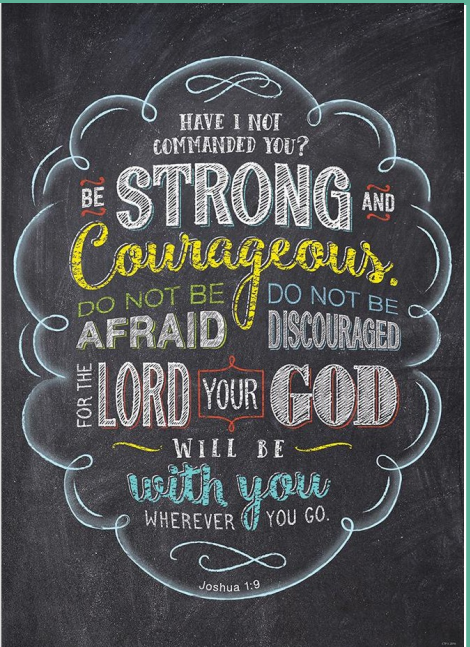 HAVE I NOT
COMMANDED YOU?
BE STRONG AND
Courageous.
DO NOT BE
AFRAID
DO NOT BE
DISCOURAGED
FOR THE LORD YOUR GOD
WILL BE
with you
WHEREVER YOU GO.
Joshua 1:9